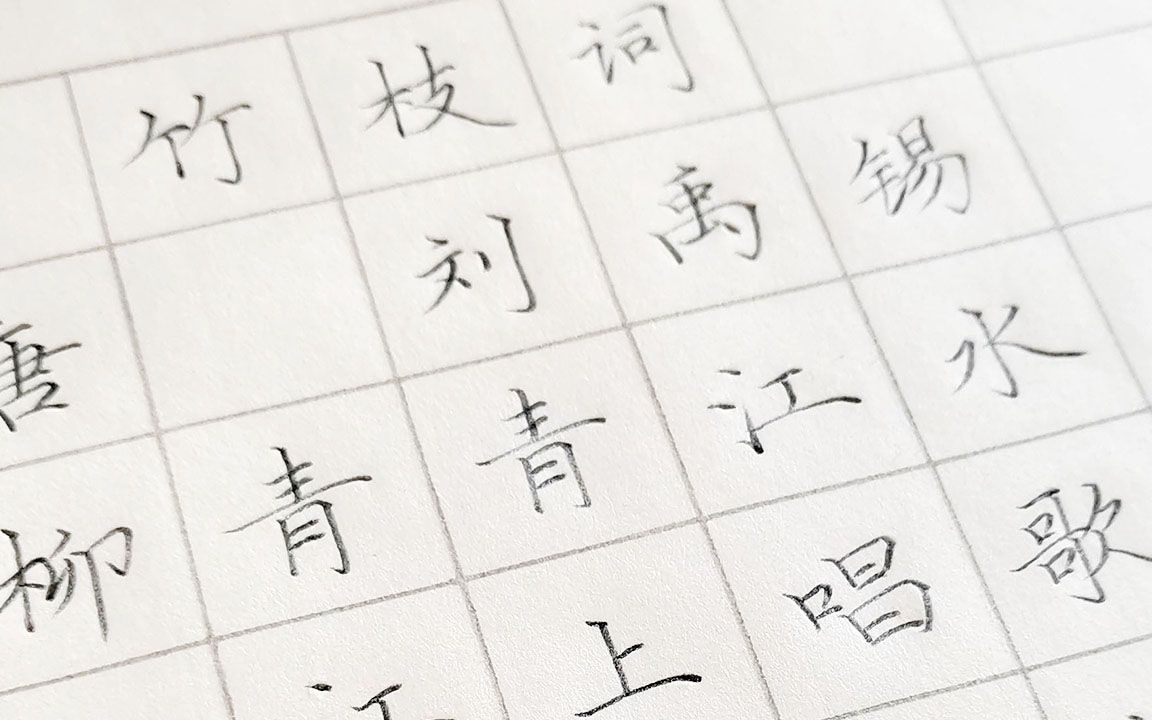 竹枝词
唐 刘禹锡
柳青青江水
江上唱歌